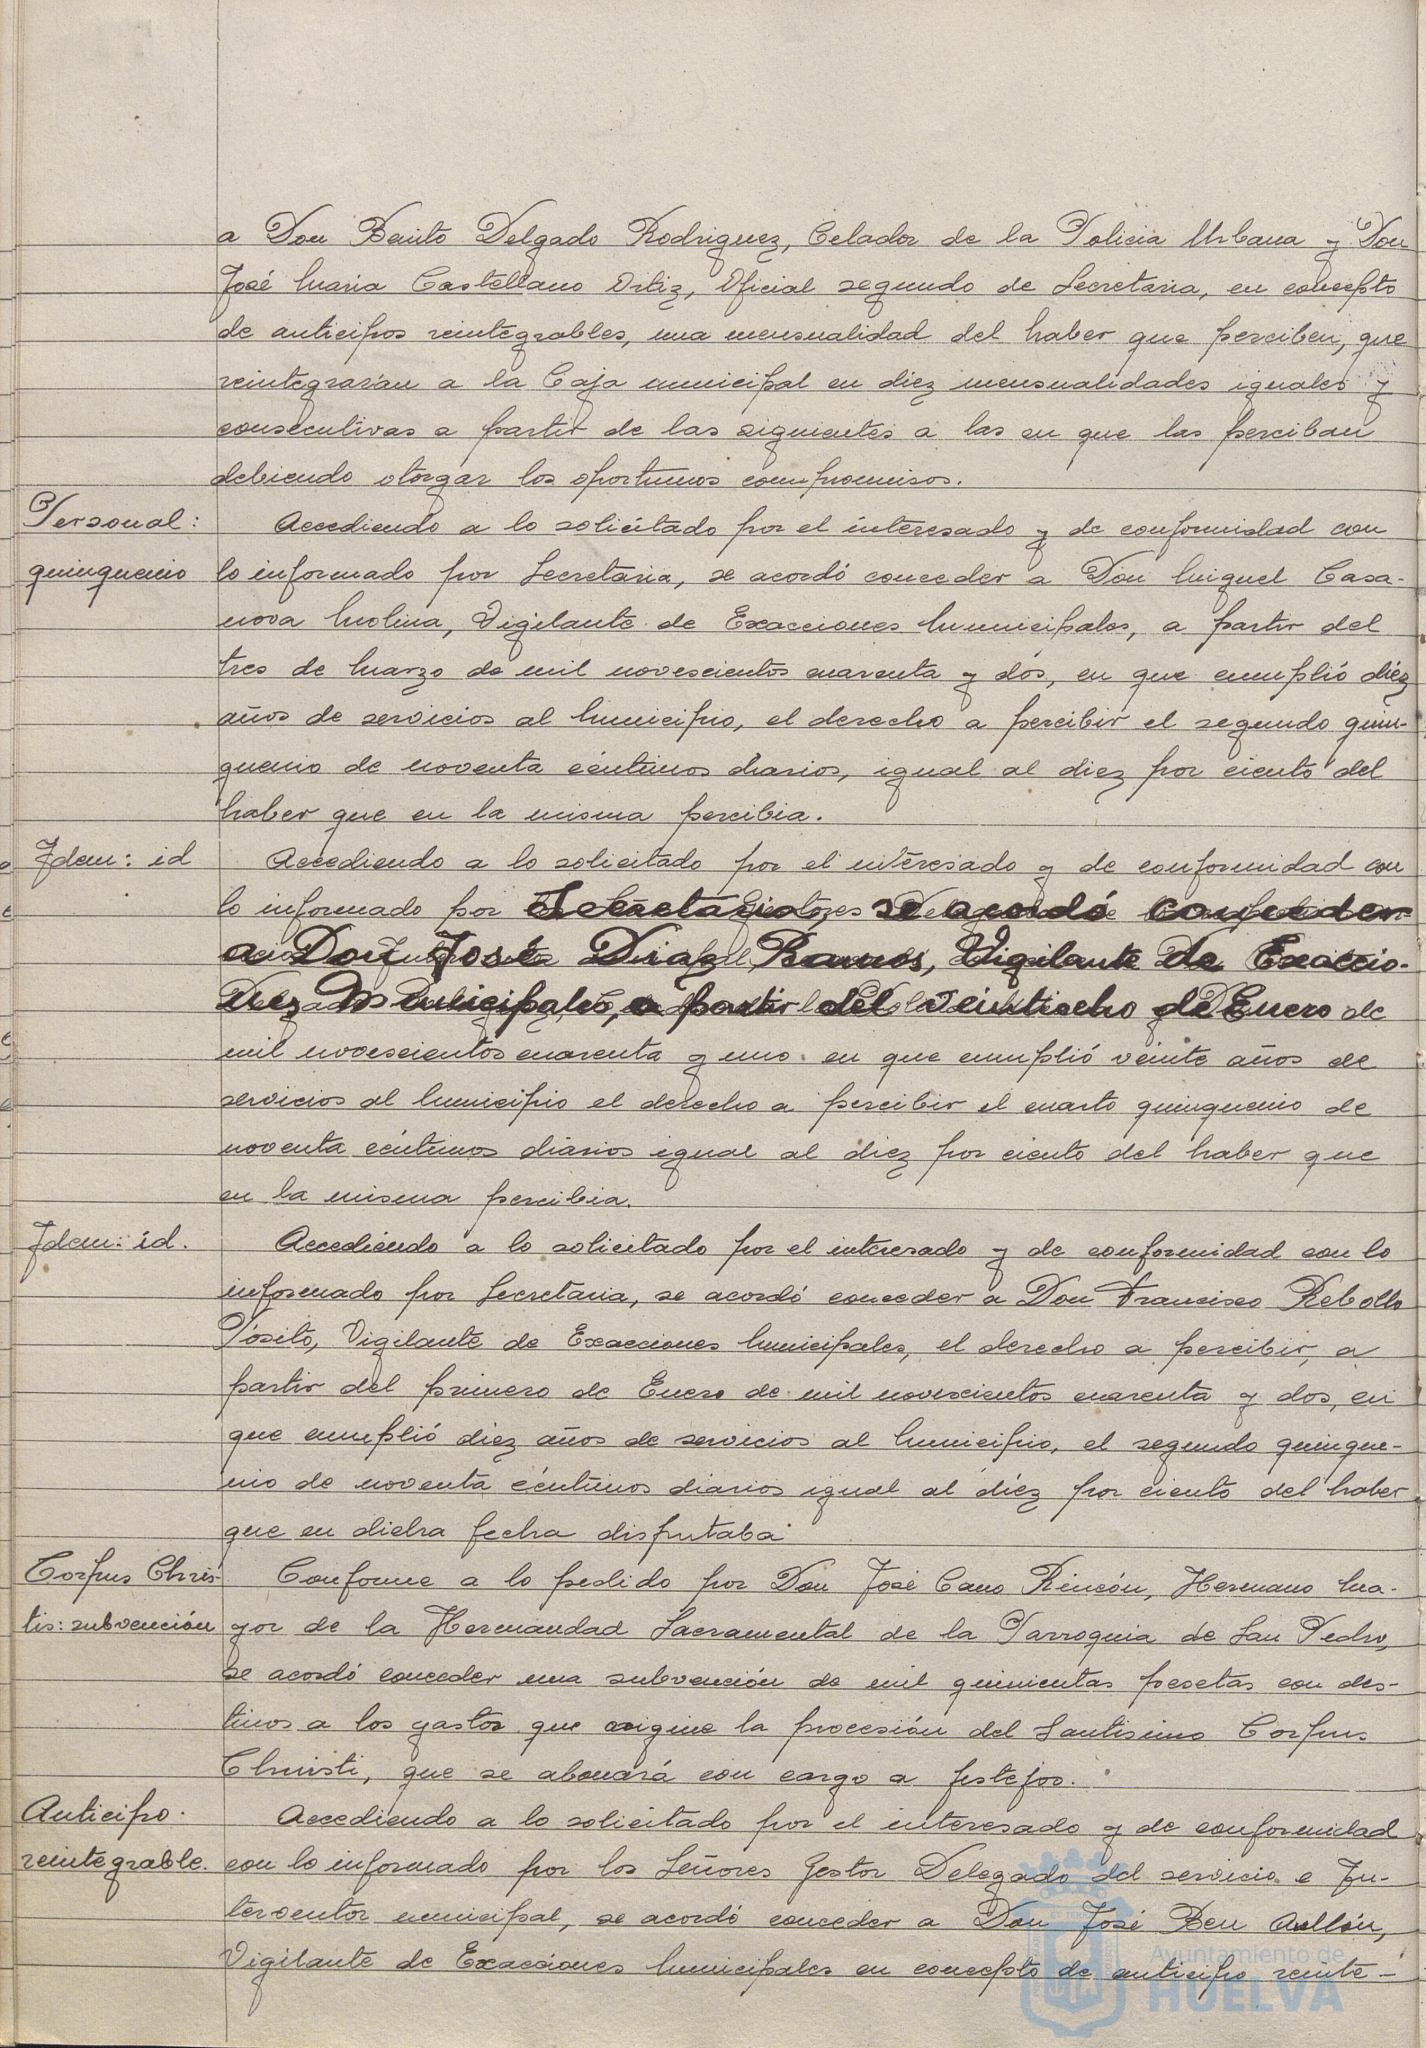 a Don Benito Delgado Rodriguez, Celador de la Policia Urbana y Don
José Maria Castellano Ortiz, Oficial segundo de Secretaria, en concepto
de anticipos reintegrables, una mensualidad del haber que perciben, que
reintegrarán a la Caja municipal en diez mensualidades iguales y
consecutivas a partir de las siguientes a las en que las perciban
debiendo otorgar los oportunos compromisos.
Personal:
quinquenio
Accediendo a lo solicitado por el interesado y de conformidad con
lo informado por Secretaria, se acordó conceder a Don Miguel Casa-
nova Molina, Vigilante de Exacciones Municipales, a partir del
tres de Marzo de mil novescientos cuarenta y dós, en que cumplió diéz
años de servicios al Municipio, el derecho a percibir el segundo quin-
quenio de noventa céntimos diarios, igual al diez por ciento del
haber que en la misma percibia.
Idem: id
Accediendo a lo solicitado por el interesado y de conformidad con
lo informado por Secretaria, se acordó conceder
a Don José Diaz Ramos, Vigilante de Exaccio-
nes Municipales, a partir del veintiocho de Enero de
mil novescientos cuarenta y uno en que cumplió veinte años de
servicios al Municipio el derecho a percibir el cuarto quinquenio de
noventa céntimos diarios igual al diez por ciento del haber que
en la misma percibia.
Idem: id.
Accediendo a lo solicitado por el interesado y de conformidad con lo
informado por Secretaria, se acordó conceder a Don Francisco Rebollo
Pósito, Vigilante de Exacciones Municipales, el derecho a percibir, a
partir del primero de Enero de mil novescientos cuarenta y dos, en
que cumplió diez años de servicios al Municipio, el segundo quinque-
nio de noventa céntimos diarios igual al diéz por ciento del haber
que en dicha fecha disfrutaba
Corpus Chris-
tis: subvención
Conforme a lo pedido por Don José Cano Rincón, Hermano Ma-
yor de la Hermandad Sacramental de la Parroquia de San Pedro,
se acordó conceder una subvención de mil quinientas pesetas con des-
tinos a los gastos que origine la procesión del Santisimo Corpus
Christi, que se abonará con cargo a festejos.
Anticipo
reintegrable.
Accediendo a lo solicitado por el interesado y de conformidad
con lo informado por los Señores Gestor Delegado del servicio e In-
terventor municipal, se acordó conceder a Don José Ben Aullón,
Vigilante de Exacciones Municipales en concepto de anticipo reinte-
Ayuntamiento de
HUELVA